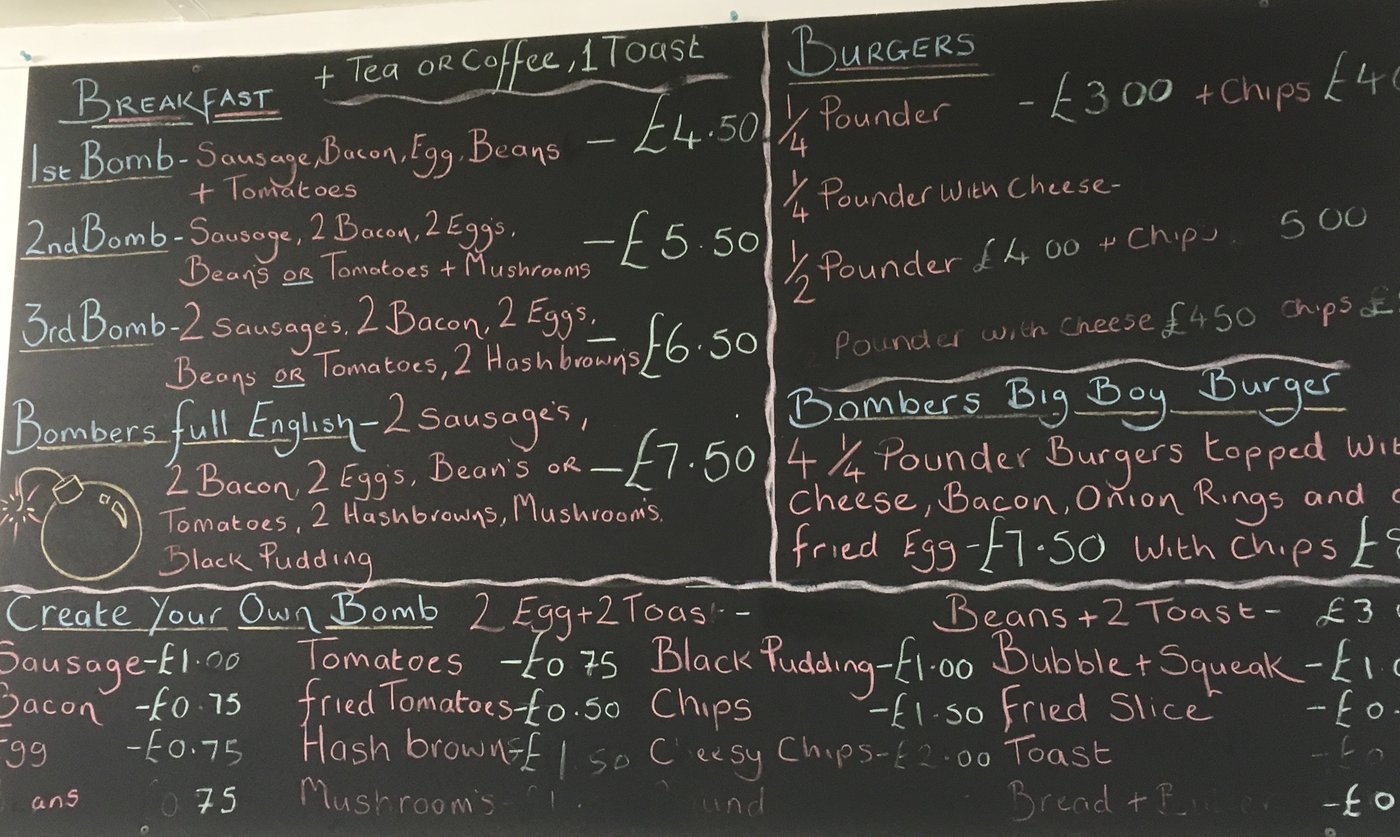 + Tea OR Coffee, 1 Toast
BREAKFAST
1st Bomb - Sausage, Bacon, Egg, Beans - £4.50
+ Tomatoes
2nd Bomb - Sausage, 2 Bacon, 2 Egg's, - £5.50
Bean's OR Tomatoes + Mushrooms
3rd Bomb - 2 Sausage's, 2 Bacon, 2 Egg's, - £6.50
Bean's OR Tomatoes, 2 Hashbrown's
Bombers full English - 2 Sausage's,
2 Bacon, 2 Egg's, Bean's OR - £7.50
Tomatoes, 2 Hashbrowns, Mushroom's,
Black Pudding
BURGERS
1/4 Pounder - £3 00 + Chips
1/4 Pounder With Cheese -
1/2 Pounder £4 00 + Chips 5 00
Pounder with Cheese £4 50 Chips
Bombers Big Boy Burger
4 1/4 Pounder Burgers topped
Cheese, Bacon, Onion Rings and
fried Egg - £7.50 With Chips
Create Your Own Bomb 2 Egg + 2 Toast - Beans + 2 Toast - £3
Sausage - £1.00 Tomatoes - £0 75 Black Pudding - £1.00 Bubble + Squeak -
Bacon - £0.75 fried Tomatoes - £0.50 Chips - £1.50 Fried Slice -
Egg - £0.75 Hash brown - £1.50 Cheesy Chips - £2.00 Toast
75 Mushroom's - Bread +